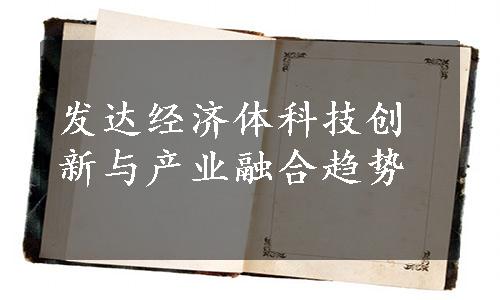 发达经济体科技创
新与产业融合趋势